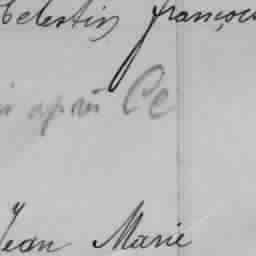 Celestin françois
après Ce
Jean Marie